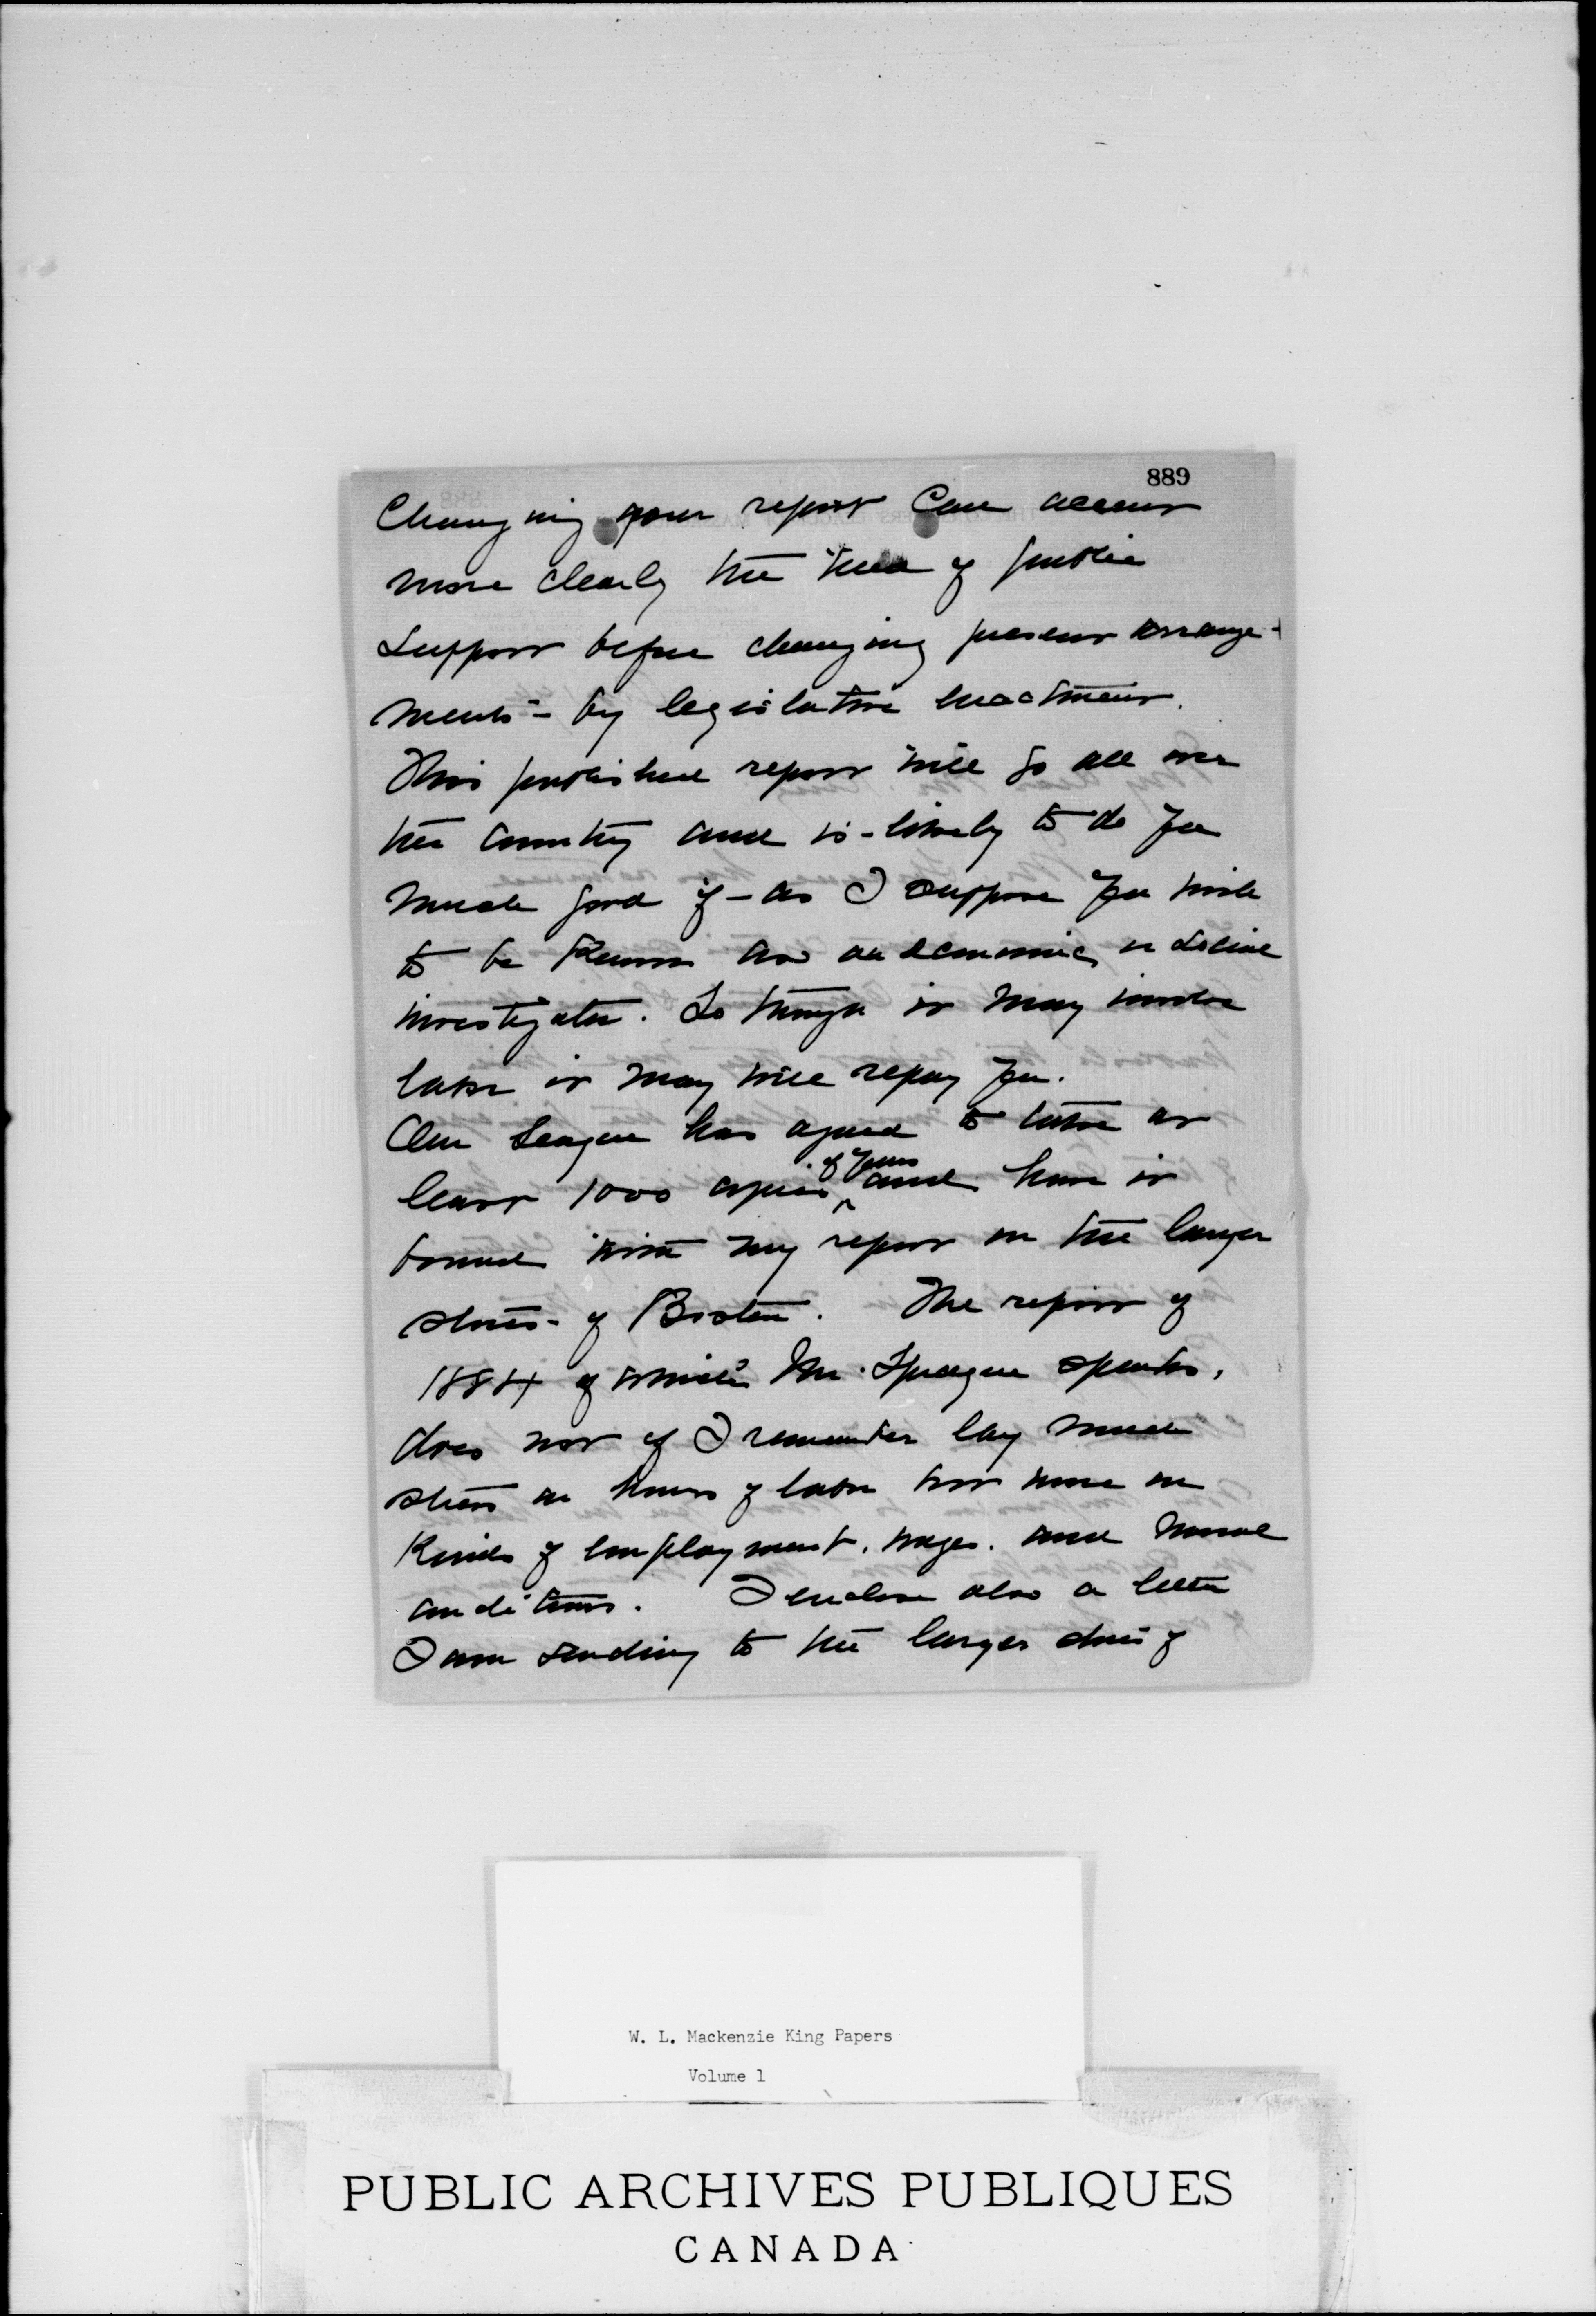 889
Changing your report can accent
more clearly the idea of public
support before changing present arrange-
ments - by legislative enactment.
This published report will go all over
the country and is likely to do you
much good if - as I suppose you wish
to be known as an economic or social
investigator. So though it may involve
labor it may well repay you.
Our League has agreed to take at
least 1000 copies of yours and have it
bound with my report on the larger
stores of Boston. The report of
1884 of which Mr. Sprague speaks,
does not if I remember lay much
stress on hours of labor but more on
kinds of employment, wages. and moral
conditions. I enclose also a letter
I am sending to the larger stores of
W. L. Mackenzie King Papers
Volume 1
PUBLIC ARCHIVES PUBLIQUES
CANADA